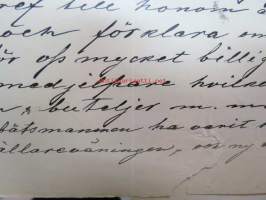 ref till honom
och förklara om
för oss mycket billig
medhjelpare hvilke
n, buteljer m. m
båtsmannen ha varit
ällarevåningen, vor ny